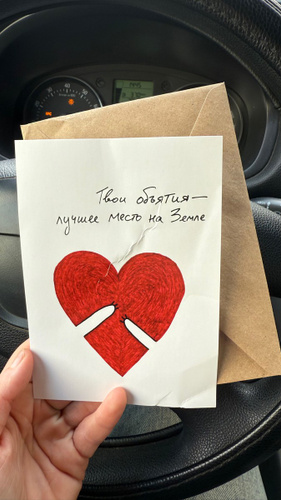 Твои объятия—
лучшее место на Земле